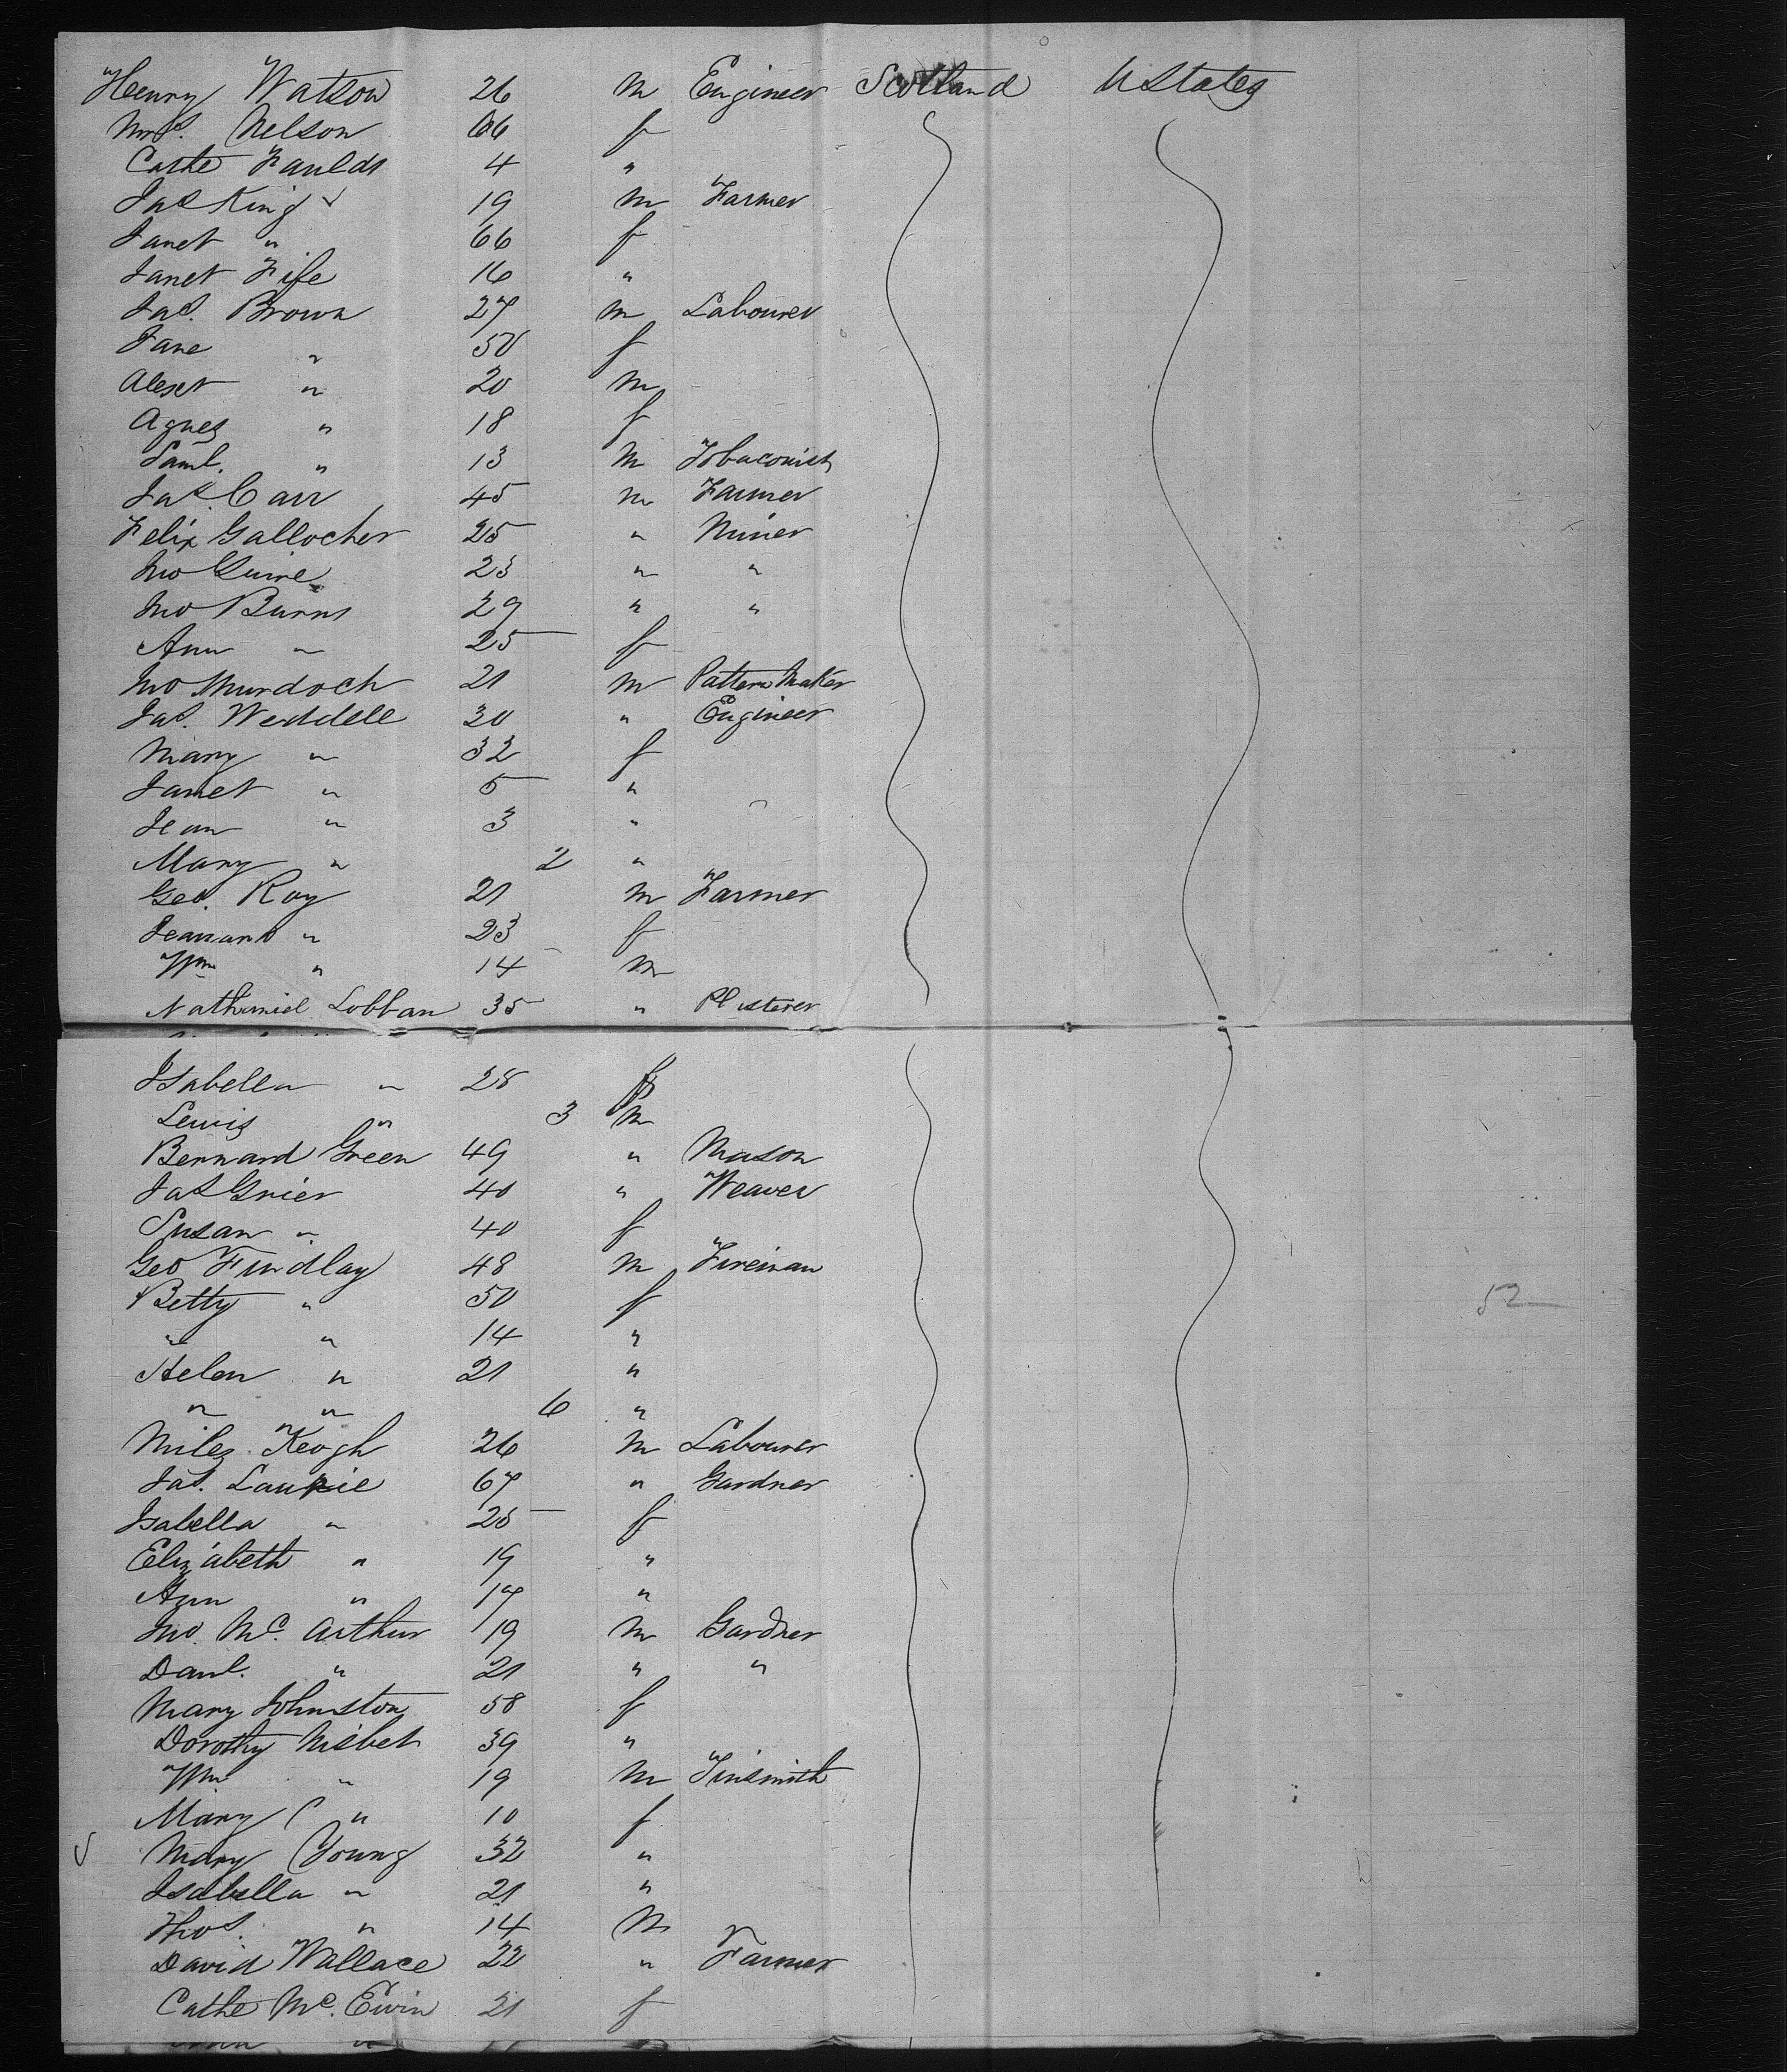 Henry Watson 26 m Engineer Scotland U States
Mrs. Nelson 66 f
Cathe Faulds 4 "
Jas King 19 m Farmer
Janet " 66 f
Janet Fife 16 "
Jas. Brown 27 m Labourer
Jane " 50 f
Alexr " 20 m
Agnes " 18 f
Saml. " 13 m Tobaconist
Jas. Carr 45 m Farmer
Felix Gallocher 25 " Miner
Jno 23 " "
Jno Burns 29 " "
Ann " 25 f
Jno Murdoch 21 m Pattern Maker
Jas. Weddell 30 " Engineer
Mary " 32 f
Janet " 5 "
Jean " 3 "
Mary " 2 "
Geo. Roy 21 m Farmer
" 23 f
Wm " 14 m
Nathaniel Lobban 35 " Plasterer
Isabella " 28 f
Lewis " 3 m
Bernard Green 49 " Mason
Jas Grier 40 " Weaver
Susan " 40 f
Geo Findlay 48 m Fireman
Betty " 50 f
" " 14 "
Helen " 21 "
" " 6 "
Miles Keogh 26 m Labourer
Jas. Laurie 67 " Gardner
Isabella " 25 f
Elizabeth " 19 "
Ann " 17 "
Jno. Mc. Arthur 19 m Gardner
Danl. " 21 " "
Mary Johnston 58 f
Dorothy Nisbet 39 "
Wm " 19 m Tinsmith
Mary C " 10 f
Mary Young 32 "
Isabella " 21 "
Thos. " 14 m
David Wallace 22 " Farmer
Cathe Mc. Ewin 21 f
52